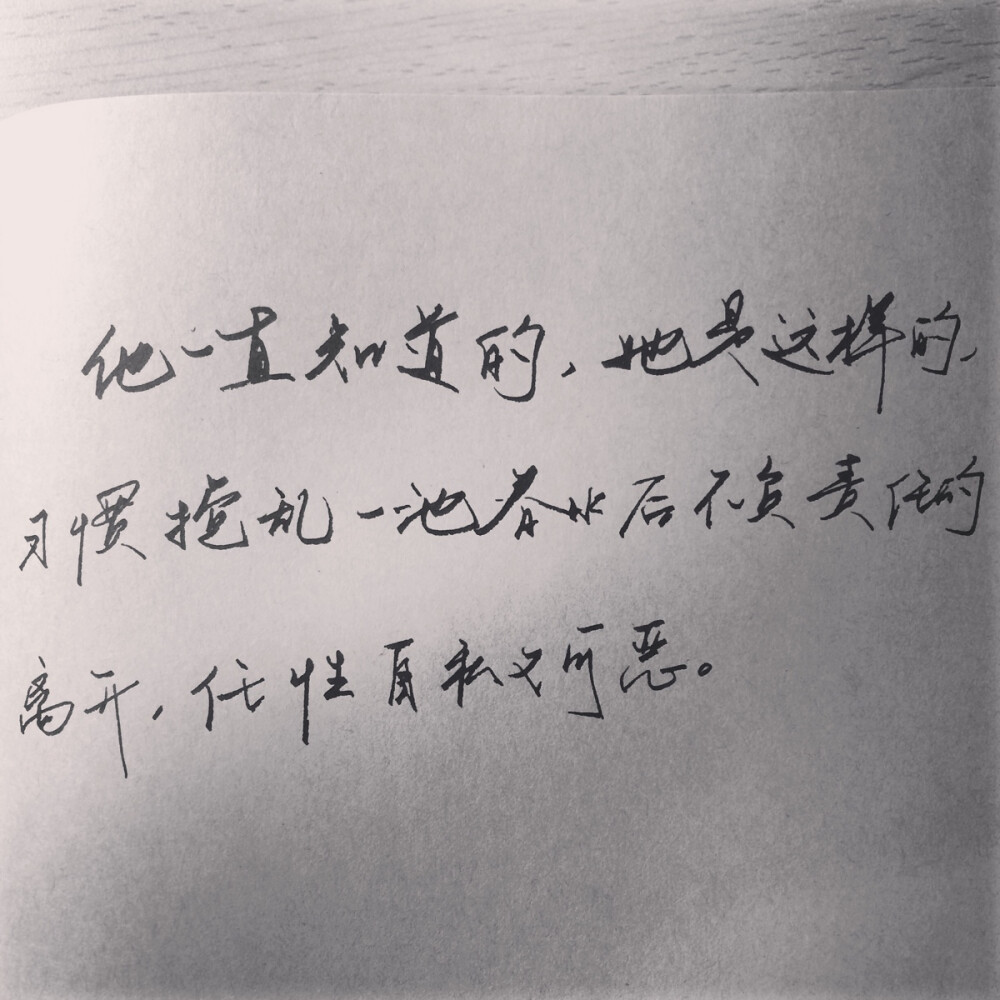 他一直知道的，她是这样的，
习惯搅乱一池春水后不负责任的
离开，任性自私又可恶。